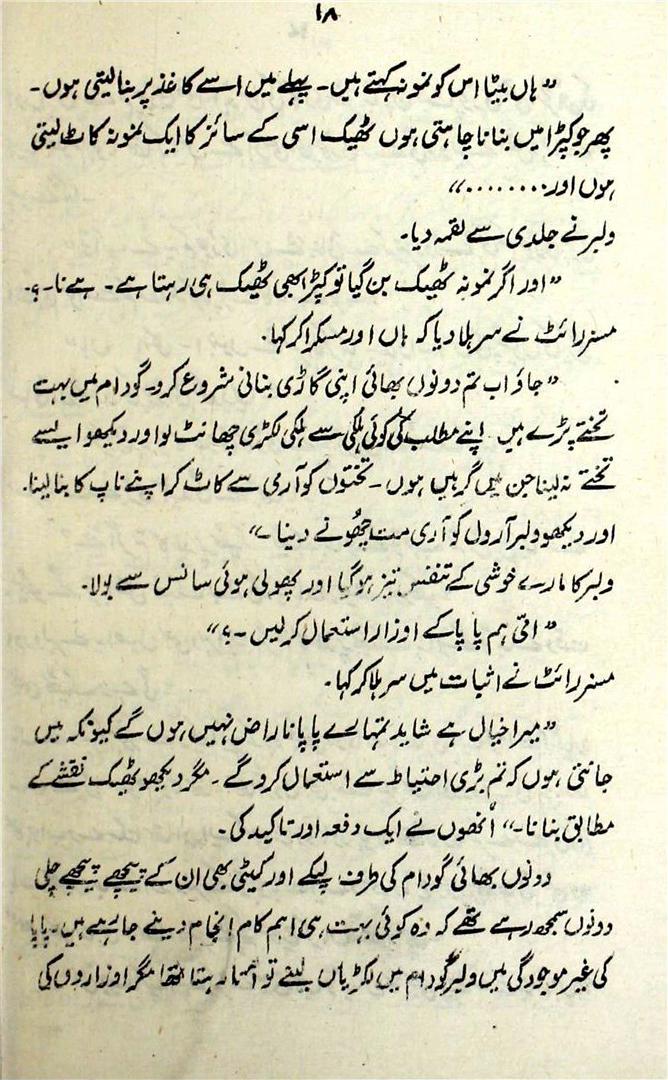 ۱۸
”ہاں بیٹا اس کو نمونہ کہتے ہیں۔ پہلے میں اسے کاغذ پر بنا لیتی ہوں۔
پھر جو کپڑا میں بنانا چاہتی ہوں ٹھیک اسی کے سائز کا ایک نمونہ کاٹ لیتی
ہوں اور........“
ولبر نے جلدی سے لقمہ دیا۔
”اور اگر نمونہ ٹھیک بن گیا تو کپڑا بھی ٹھیک ہی رہتا ہے۔ ہے نا۔؟۔
مسز رائٹ نے سر ہلا دیا کہ ہاں اور مسکرا کر کہا۔
”جاؤ اب تم دونوں بھائی اپنی گاڑی بنانی شروع کرو۔ گودام میں بہت
تختے پڑے ہیں۔ اپنے مطلب کی کوئی ہلکی سے ہلکی لکڑی چھانٹ لو اور دیکھو ایسے
تختے نہ لینا جن میں گرہیں ہوں۔ تختوں کو آری سے کاٹ کر اپنے ناپ کا بنا لینا۔
اور دیکھو ولبر آرول کو آری مت چھُونے دینا۔“
ولبر کا مارے خوشی کے تنفس تیز ہو گیا اور پھولی ہوئی سانس سے بولا۔
”امّی ہم پاپا کے اوزار استعمال کر لیں۔؟“
مسز رائٹ نے اثبات میں سر ہلا کر کہا۔
”میرا خیال ہے شاید تمہارے پاپا ناراض نہیں ہوں گے کیونکہ میں
جانتی ہوں کہ تم بڑی احتیاط سے استعمال کرو گے۔ مگر دیکھو ٹھیک نقشے کے
مطابق بنانا۔“ اُنھوں نے ایک دفعہ اور تاکید کی۔
دونوں بھائی گودام کی طرف لپکے اور کیٹی بھی ان کے پیچھے پیچھے چلی
دونوں سمجھ رہے تھے کہ وہ کوئی بہت ہی اہم کام انجام دینے جا رہے ہیں۔ پاپا
کی غیر موجودگی میں ولبر گودام میں لکڑیاں لینے تو آتا رہتا تھا مگر اوزاروں کی